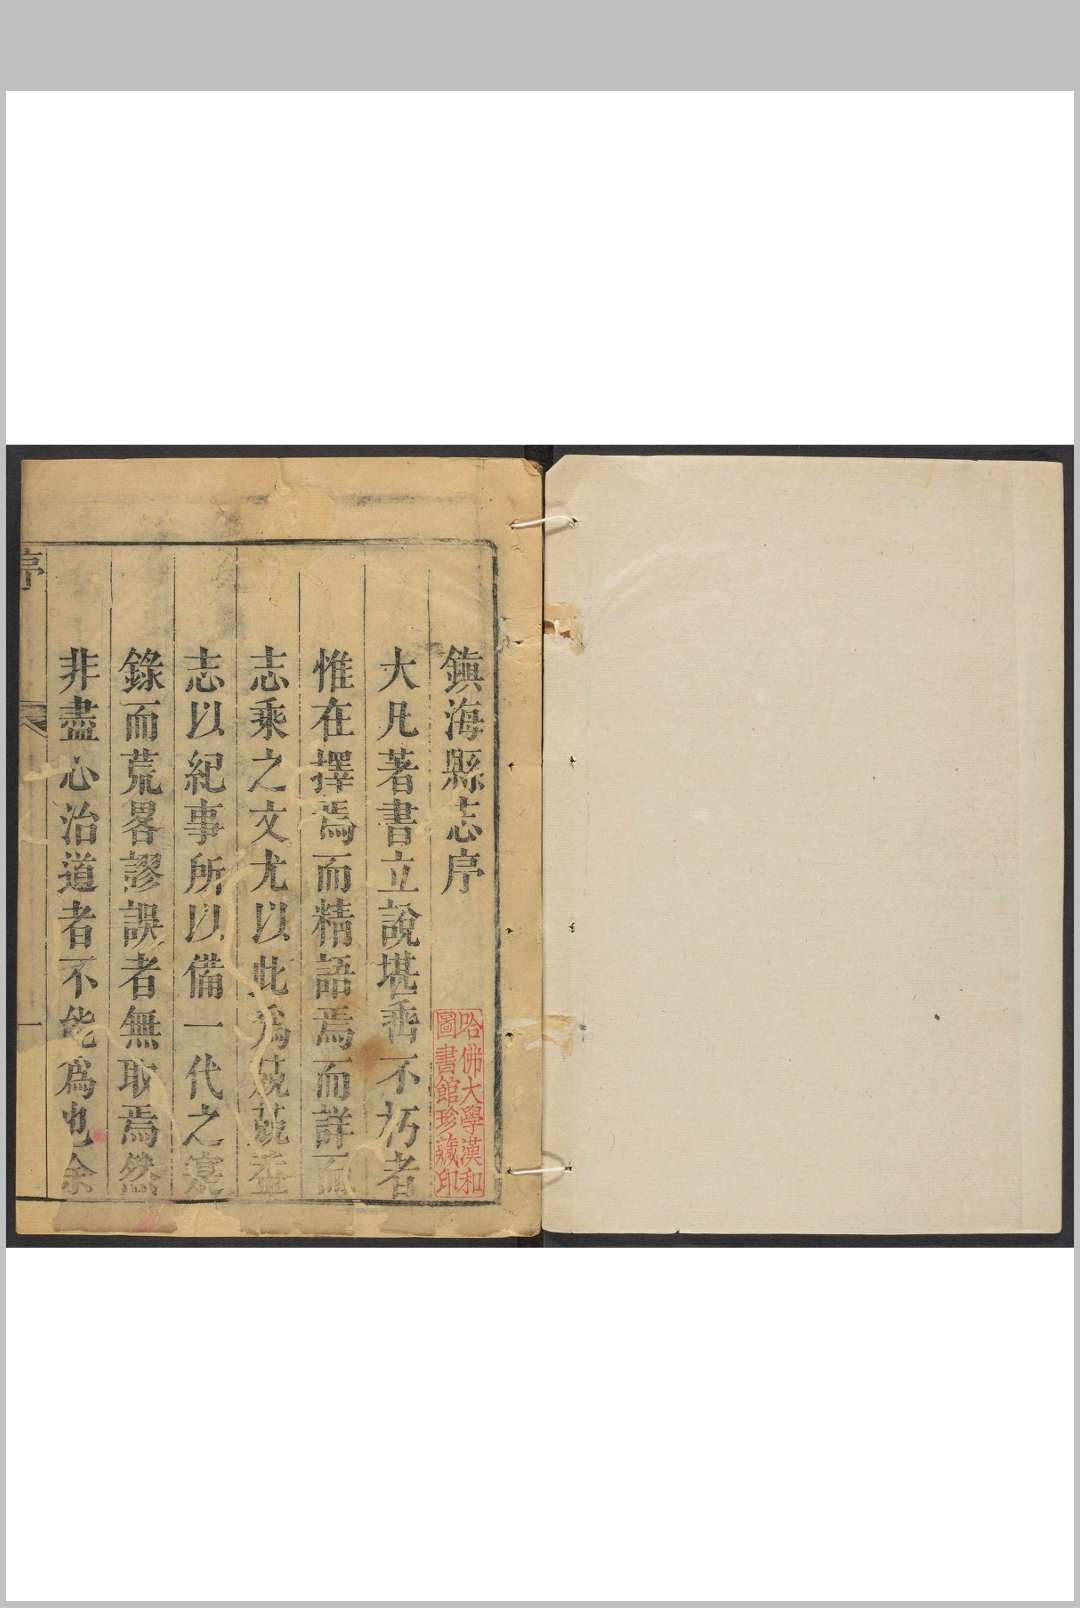 鎮海縣志序
大凡著書立說堪垂不朽者
惟在擇焉而精語焉而詳而
志乘之文尤以此為兢兢蓋
志以紀事所以備一代之寔
錄而荒畧謬誤者無取焉然
非盡心治道者不能爲也余
序
一
哈佛大學漢和
圖書館珍藏印